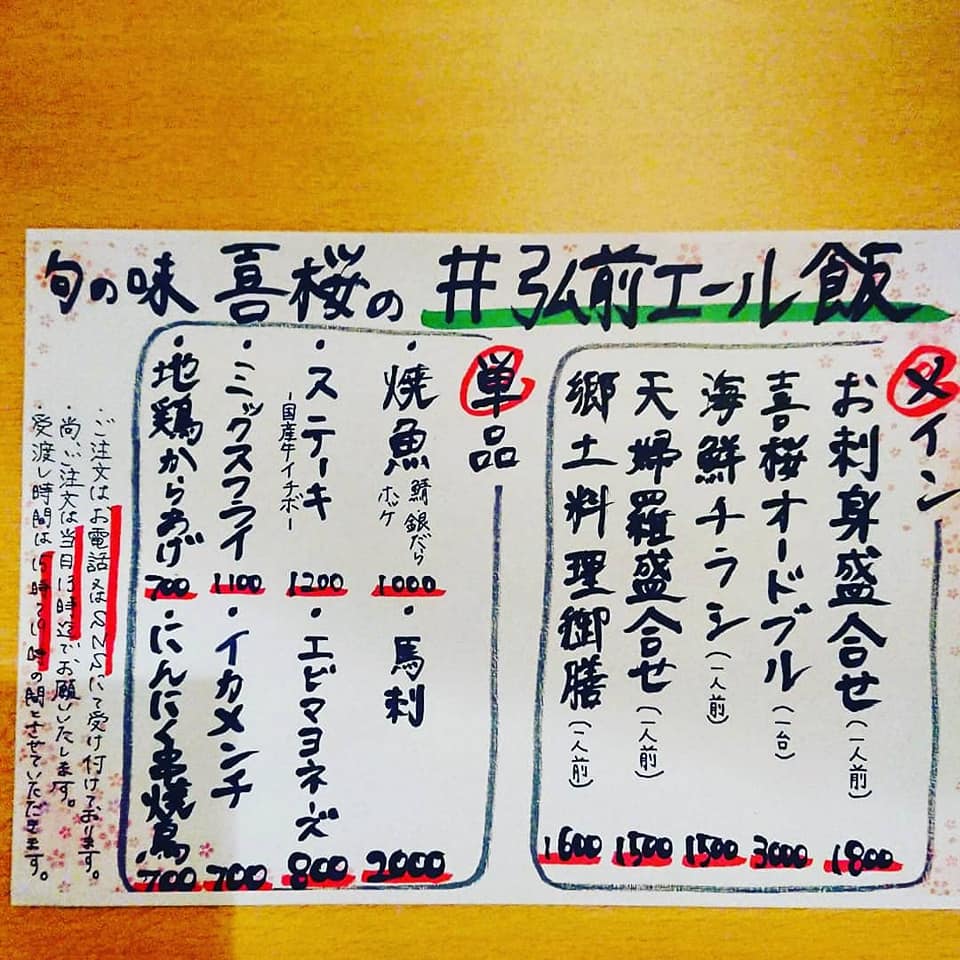 旬の味 喜桜の #弘前エール飯
メイン
お刺身盛合せ(一人前) 1800
喜桜オードブル(一台) 3000
海鮮チラシ(一人前) 1500
天婦羅盛合せ(一人前) 1500
郷土料理御膳(一人前) 1600
単品
・焼魚 鯖 銀だら ホッケ 1000
・馬刺 2000
・ステーキ -国産牛イチボ- 1200
・エビマヨネーズ 800
・ミックスフライ 1100
・イカメンチ 700
・地鶏からあげ 700
・にんにく串焼鳥 700
・ご注文はお電話又はSNSにて受け付けております。
・尚、ご注文は当日13時迄でお願いいたします。
・受渡し時間は15時〜19時の間とさせていただきます。